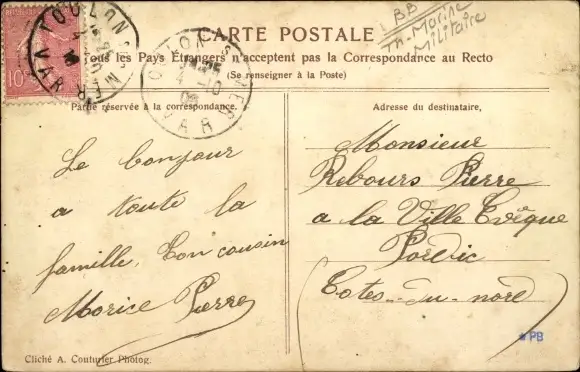 CARTE POSTALE
Tous les Pays Étrangers n'acceptent pas la Correspondance au Recto
(Se renseigner à la Poste)
BB
Th. Marine
Militaire
TOULON S MER
VAR
TOULON S MER
VAR
10
Partie réservée à la correspondance.
Adresse du destinataire,
Le bonjour
a toute la
famille. Ton cousin
Morice Pierre
Monsieur
Rebours Pierre
a la Ville Evêque
Pordic
Cotes-du-nord
Cliché A. Couturier Photog.
PB